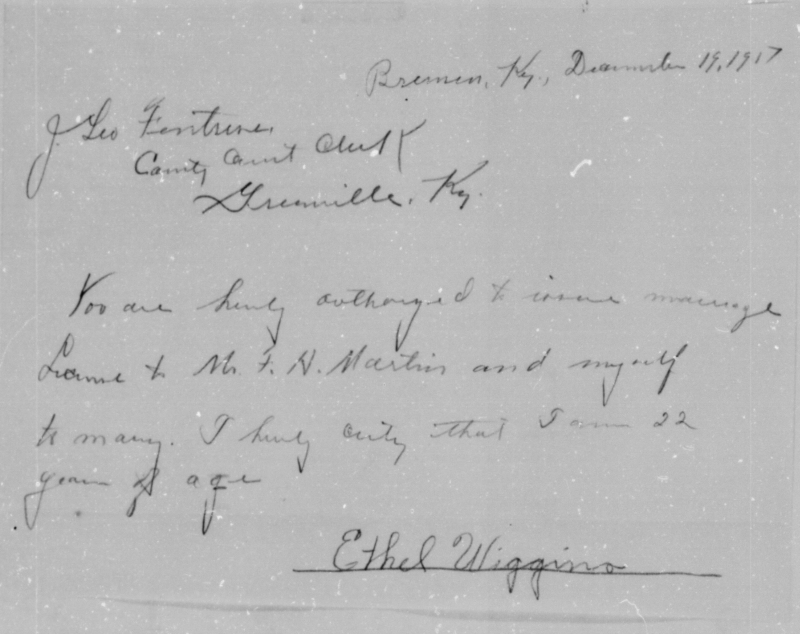 Bremen, Ky., December 19, 1917
J. Leo Fentress,
County Court Clerk
Greenville, Ky.
You are hereby authorized to issue marriage
License to Mr. F. H. Martin and myself
to marry. I hereby certify that I am 22
years of age
Ethel Wiggins